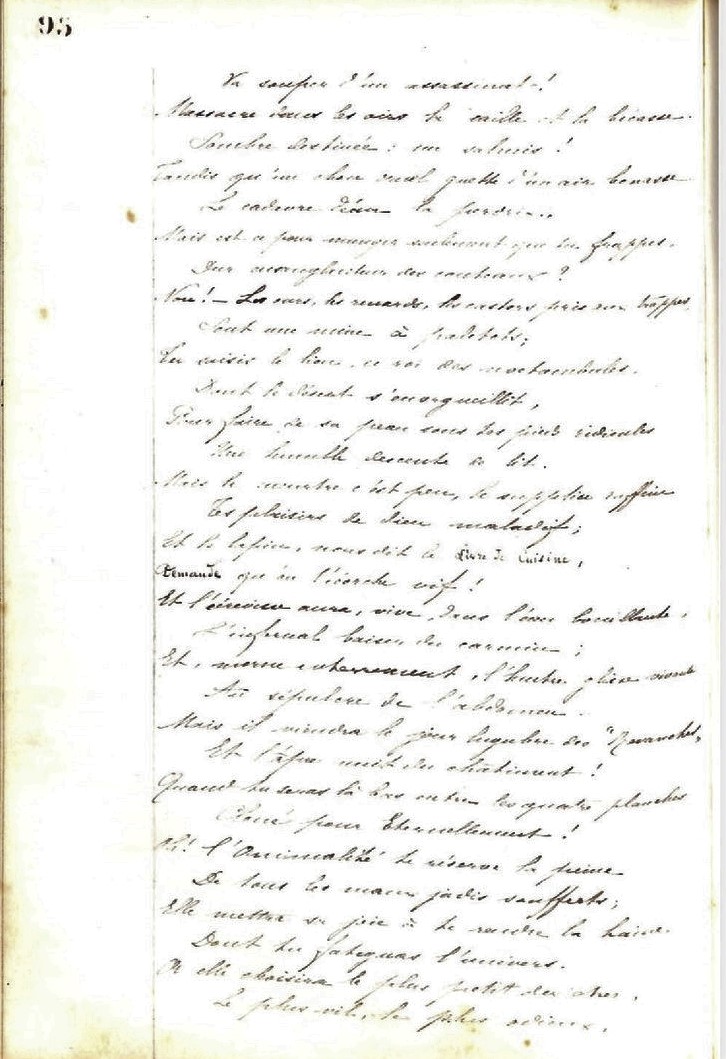 95
Va souper d'un assassinat !
Massacre dans les airs la caille et la bécasse.
Sombre destinée : un salmis !
Tandis qu'un chou cruel guette d'un air bonasse
Le cadavre d'une perdrix.
Mais est ce pour manger seulement que tu frappes,
Dur ensanglanteur des couteaux ?
Non ! — Les ours, les renards, les castors pris aux trappes
Sont une mine à paletots ;
Tu saisis le lion, ce roi des noctambules.
Dont le désert s'enorgueillit,
Pour faire de sa peau sous tes pieds ridicules
Une humble descente de lit.
Mais le meurtre c'est peu, le supplice raffine
Tes plaisirs de dieu maladif ;
Et le lapin, nous dit le Livre de Cuisine,
Demande qu'on l'écorche vif !
Et l'écrevisse aura, vive, dans l'eau bouillante,
L'infernal baiser du carmin ;
Et, morne enterrement, l'huître glisse vivante
Au sépulcre de l'abdomen.
Mais il viendra le jour lugubre des "Revanches"
Et l'âpre nuit du châtiment !
Quand tu seras là bas entre les quatre planches
Cloué pour Eternellement !
Oh ! l'Animalité te réserve la peine
De tous les maux jadis soufferts ;
Elle mettra sa joie à te rendre la haine
Dont tu fatiguas l'univers.
Or elle choisira le plus petit des êtres,
Le plus vil, le plus odieux,